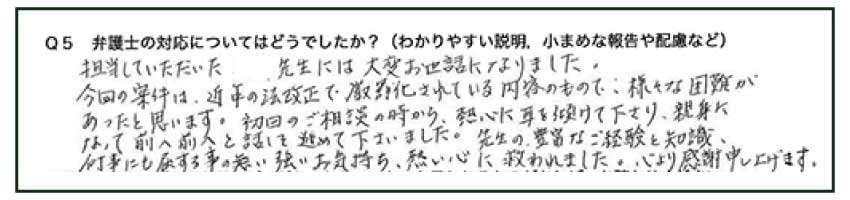 Q5 弁護士の対応についてはどうでしたか？（わかりやすい説明，小まめな報告や配慮など）
担当していただいた　　先生には大変お世話になりました。
今回の案件は、近年の法改正で厳罰化されている内容のもので、様々な困難が
あったと思います。初回のご相談の時から、熱心に耳を傾けて下さり、親身に
なって前へ前へと話しを進めて下さいました。先生の豊富なご経験と知識、
何事にも屈する事の無い強いお気持ち、熱い心に救われました。心より感謝申し上げます。